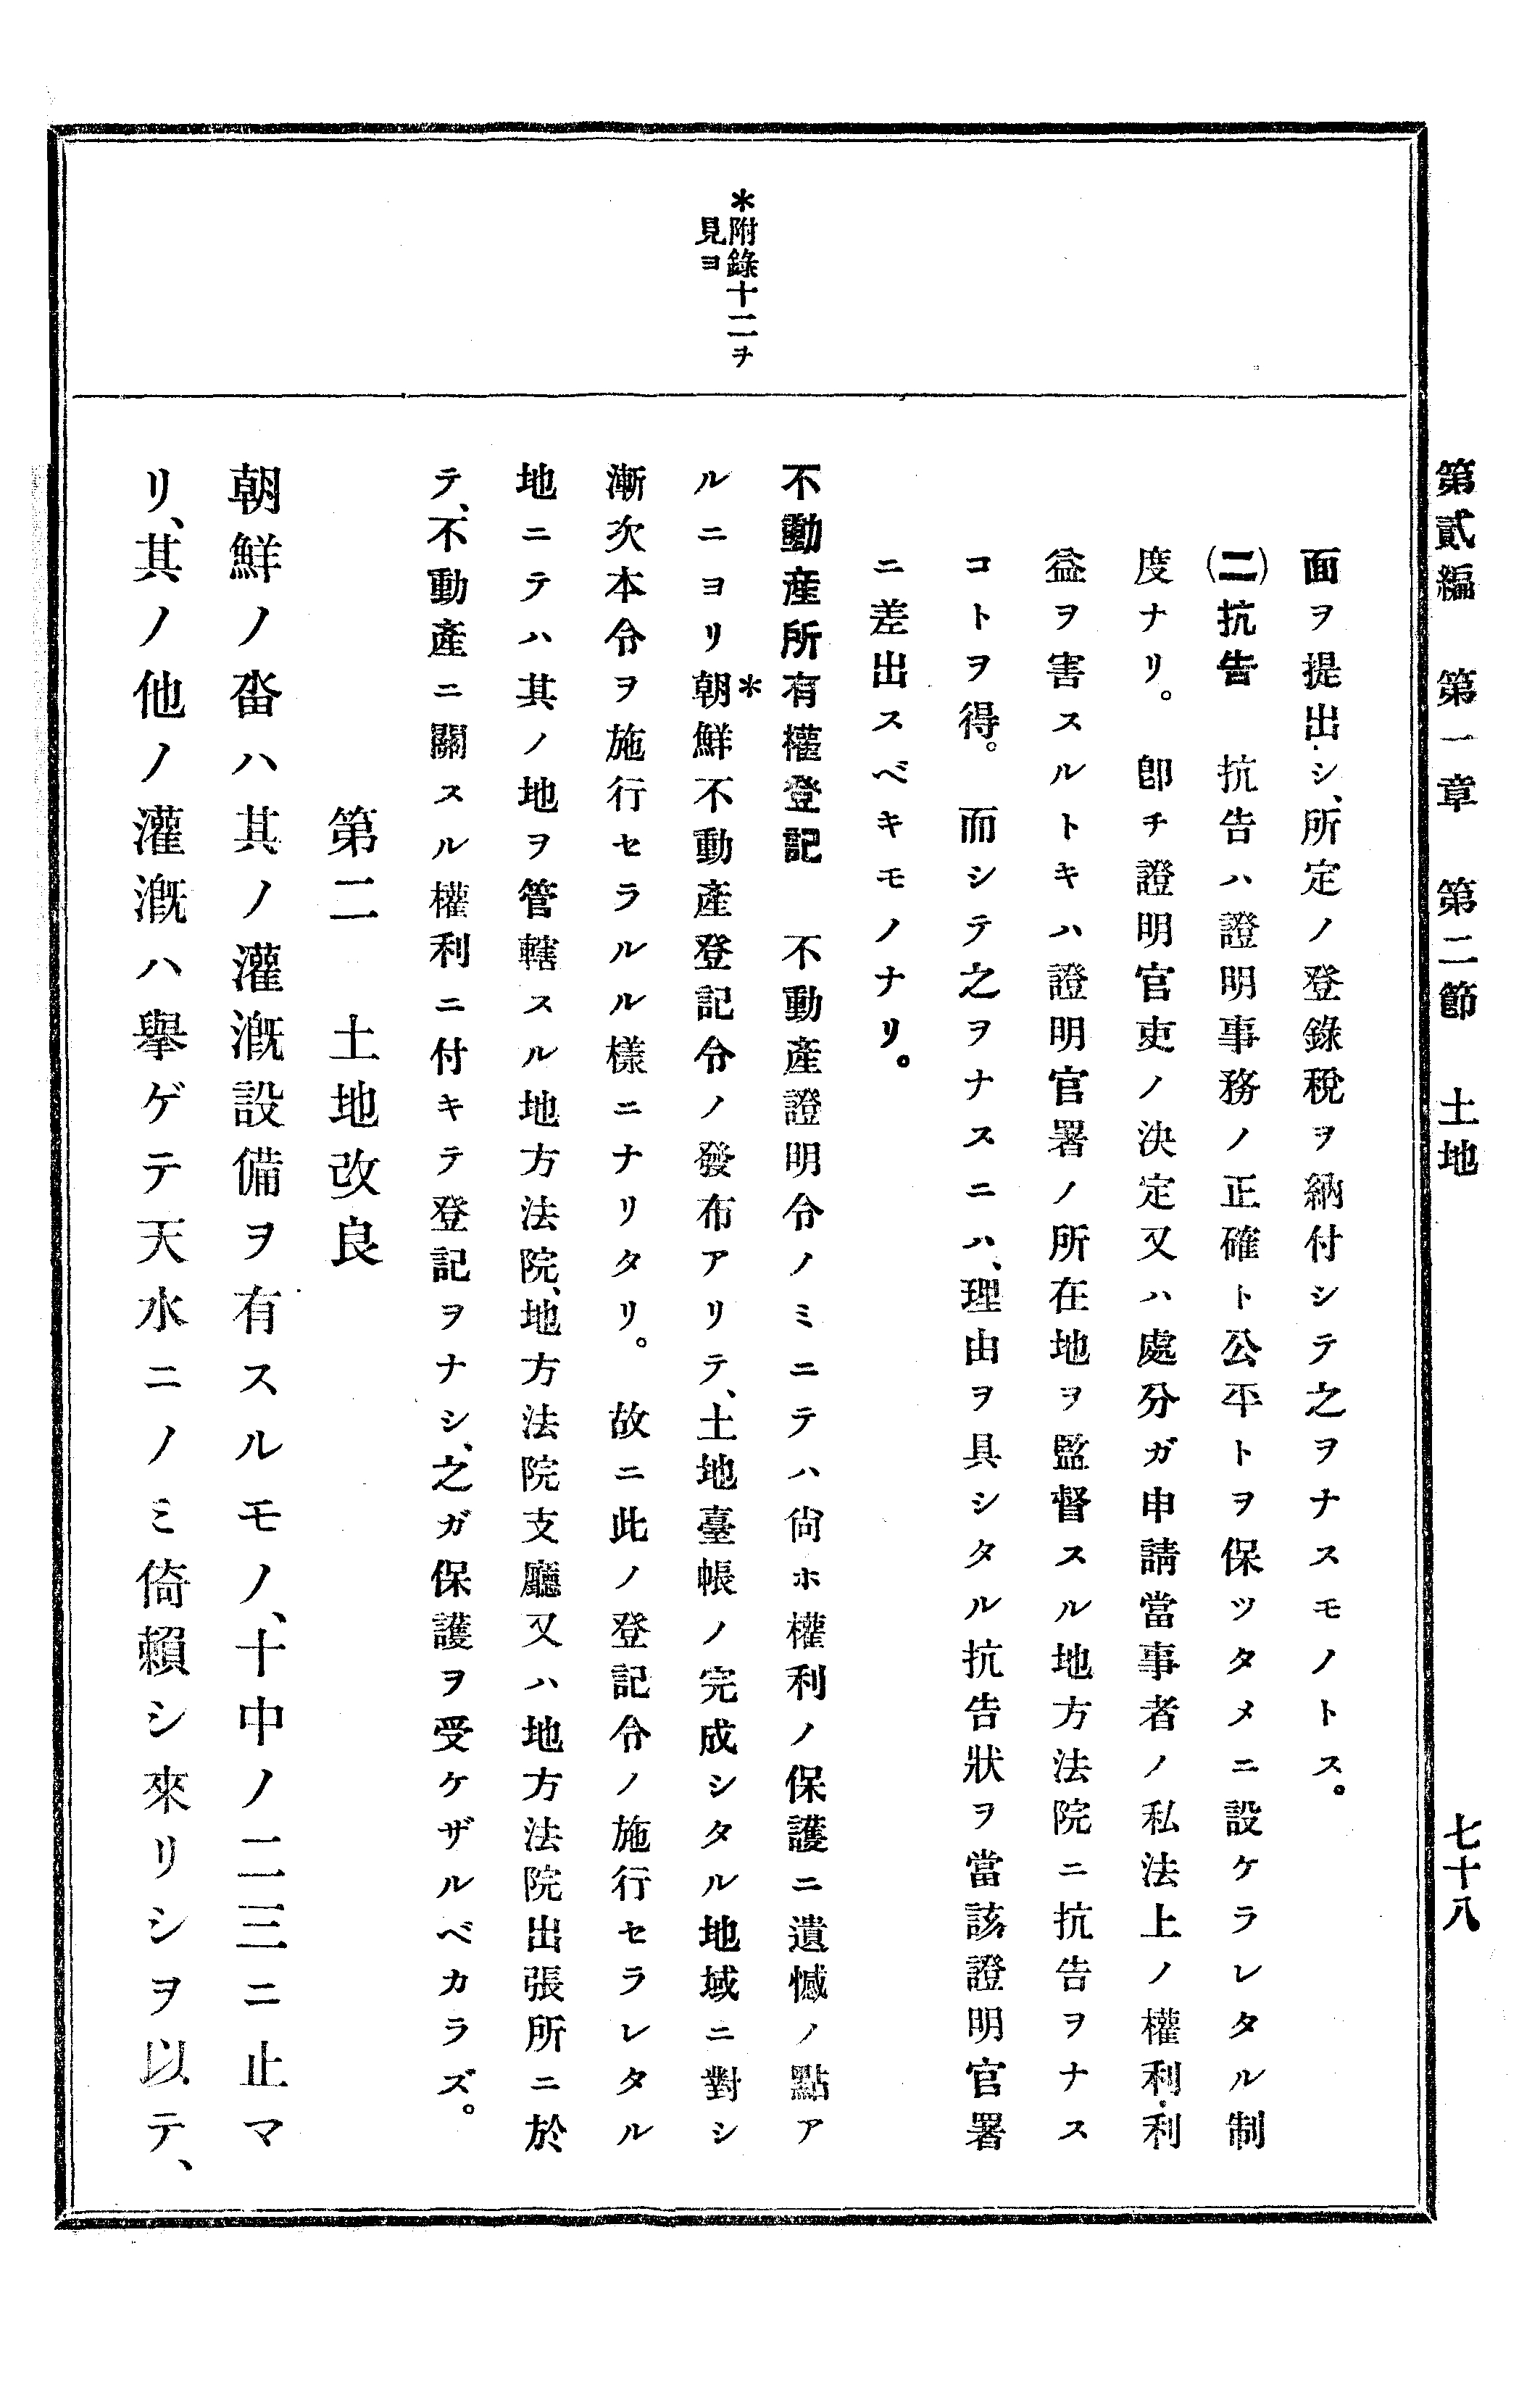 第貳編　第一章　第二節　土地
七十八
面ヲ提出シ、所定ノ登錄稅ヲ納付シテ之ヲナスモノトス。
(二)抗告　抗告ハ證明事務ノ正確ト公平トヲ保ツタメニ設ケラレタル制
度ナリ。　卽チ證明官吏ノ決定又ハ處分ガ申請當事者ノ私法上ノ權利・利
益ヲ害スルトキハ證明官署ノ所在地ヲ監督スル地方法院ニ抗告ヲナス
コトヲ得。　而シテ之ヲナスニハ、理由ヲ具シタル抗告狀ヲ當該證明官署
ニ差出スベキモノナリ。
不動産所有權登記　不動產證明令ノミニテハ尙ホ權利ノ保護ニ遺憾ノ點ア
ルニヨリ*朝鮮不動產登記令ノ發布アリテ、土地臺帳ノ完成シタル地域ニ對シ
漸次本令ヲ施行セラルル樣ニナリタリ。　故ニ此ノ登記令ノ施行セラレタル
地ニテハ其ノ地ヲ管轄スル地方法院、地方法院支廳又ハ地方法院出張所ニ於
テ、不動產ニ關スル權利ニ付キテ登記ヲナシ、之ガ保護ヲ受ケザルベカラズ。
*附錄十二ヲ
見ヨ
第二　土地改良
朝鮮ノ畓ハ其ノ灌漑設備ヲ有スルモノ、十中ノ二三ニ止マ
リ、其ノ他ノ灌漑ハ擧ゲテ天水ニノミ倚賴シ來リシヲ以テ、